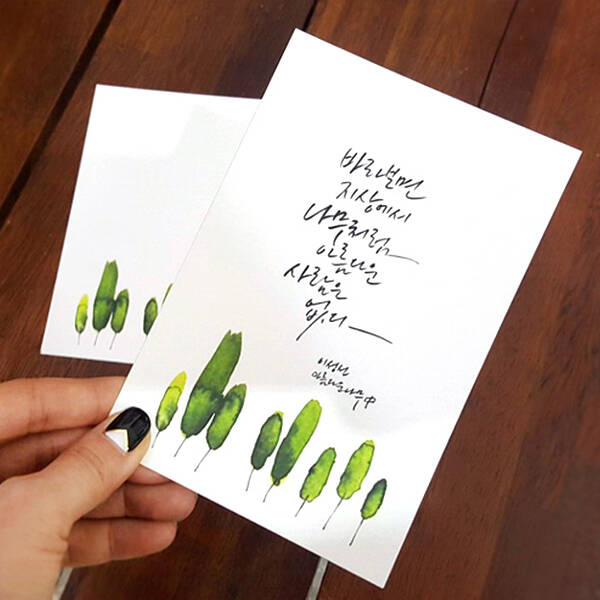 바라보면
지상에서
나무처럼
아름다운
사람은
없다
이성선
아름다운 나무 中